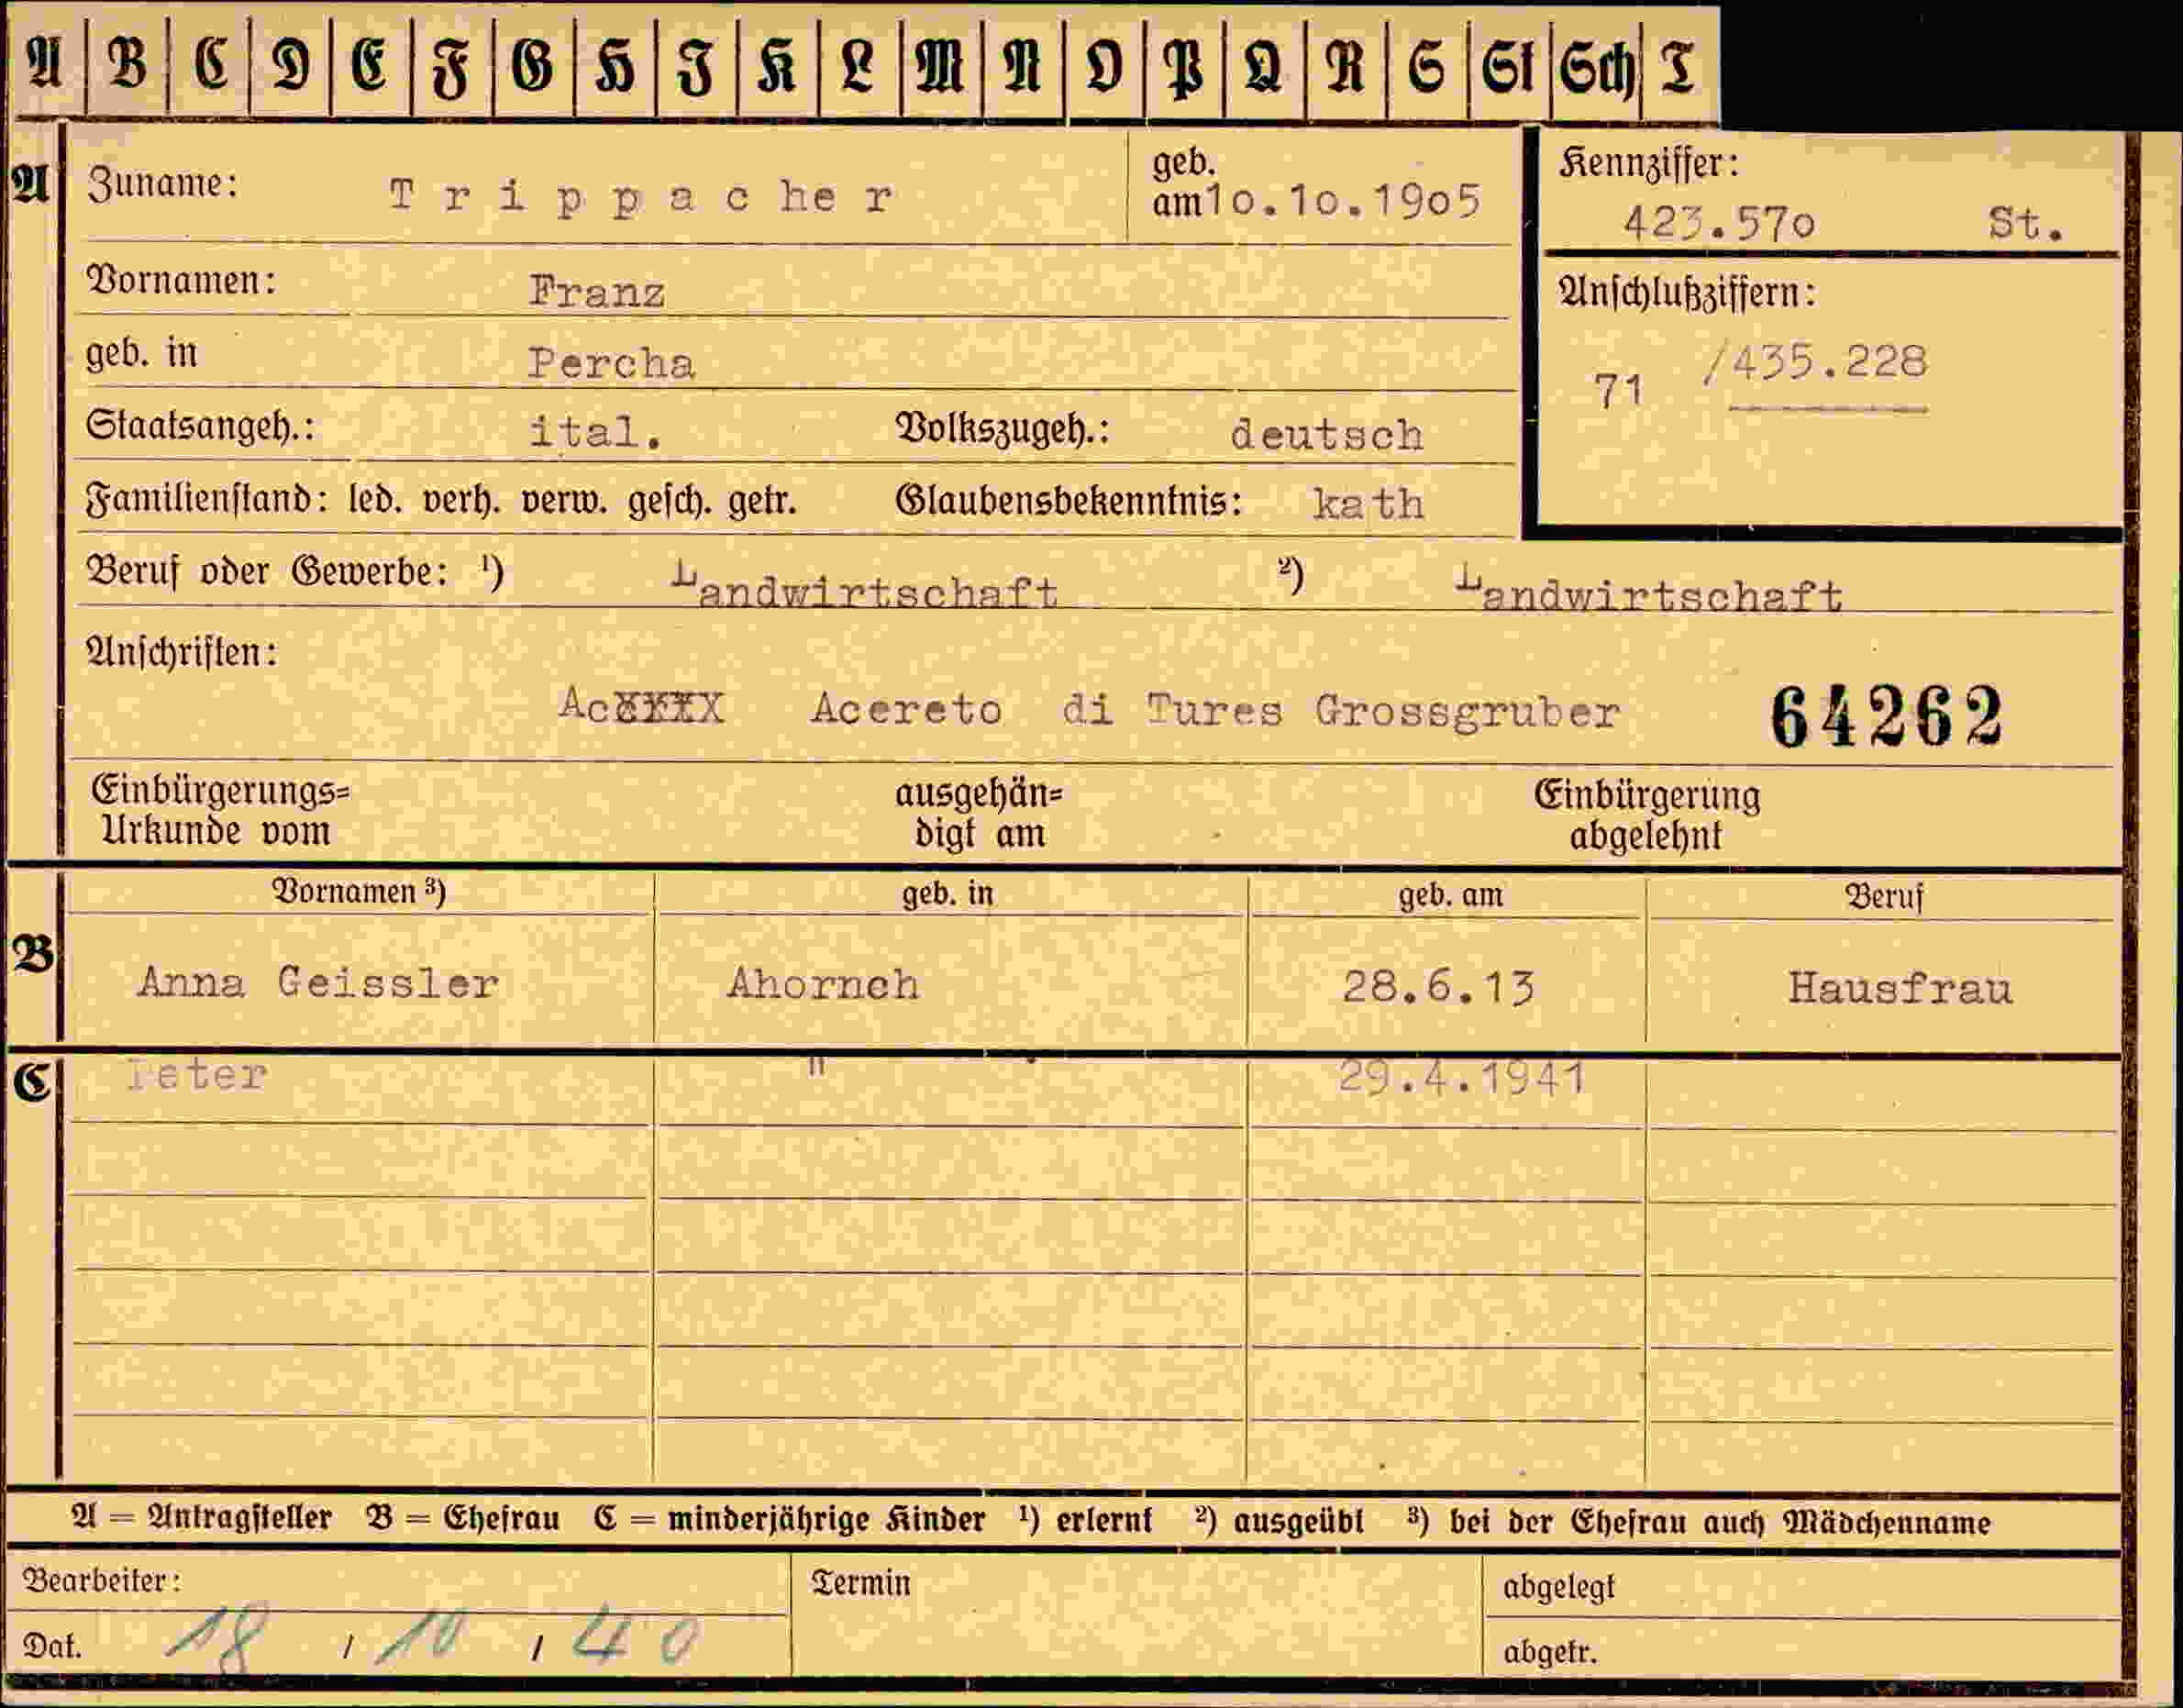 A B C D E F G H I K L M N O P Q R S St Sch T
A Zuname: Trippacher geb. am 10.10.1905 Kennziffer: 423.570 St.
Vornamen: Franz Anschlußziffern:
geb. in Percha 71 /435.228
Staatsangeh.: ital. Volkszugeh.: deutsch
Familienstand: led. verh. verw. gesch. getr. Glaubensbekenntnis: kath
Beruf oder Gewerbe: ¹) Landwirtschaft ²) Landwirtschaft
Anschriften:
Acereto di Tures Grossgruber 64262
Einbürgerungs= ausgehän= Einbürgerung
Urkunde vom digt am abgelehnt
Vornamen ³) geb. in geb. am Beruf
B Anna Geissler Ahornch 28.6.13 Hausfrau
C Peter " 29.4.1941
A = Antragsteller B = Ehefrau C = minderjährige Kinder ¹) erlernt ²) ausgeübt ³) bei der Ehefrau auch Mädchenname
Bearbeiter: Termin abgelegt
Dat. 18 / 10 / 40 abgetr.